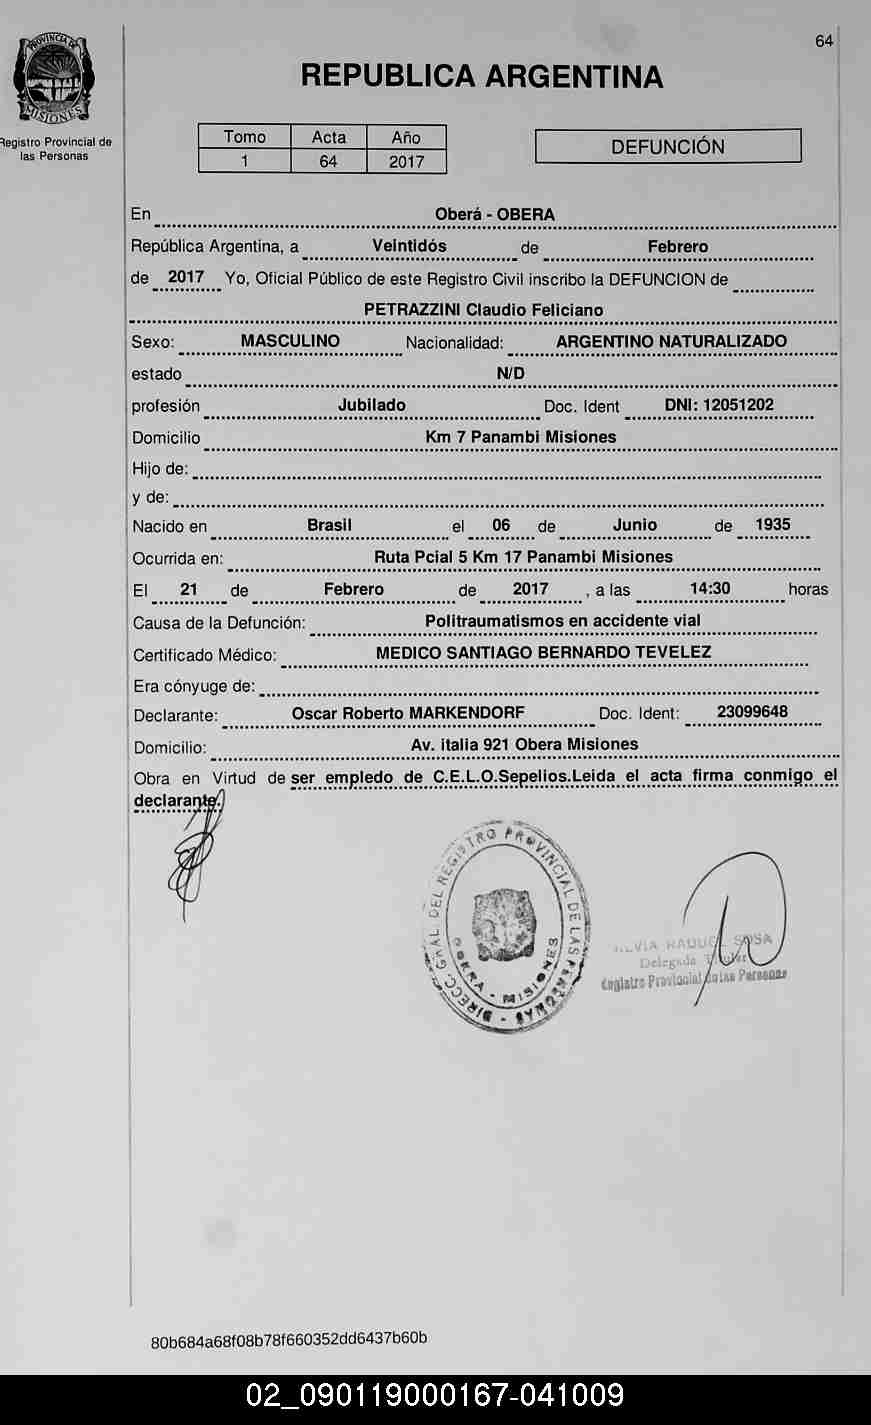 64
PROVINCIA DE
MISIONES
Registro Provincial de
las Personas
REPUBLICA ARGENTINA
Tomo Acta Año
1 64 2017
DEFUNCIÓN
En Oberá - OBERA
República Argentina, a Veintidós de Febrero
de 2017 Yo, Oficial Público de este Registro Civil inscribo la DEFUNCION de
PETRAZZINI Claudio Feliciano
Sexo: MASCULINO Nacionalidad: ARGENTINO NATURALIZADO
estado N/D
profesión Jubilado Doc. Ident DNI: 12051202
Domicilio Km 7 Panambi Misiones
Hijo de:
y de:
Nacido en Brasil el 06 de Junio de 1935
Ocurrida en: Ruta Pcial 5 Km 17 Panambi Misiones
El 21 de Febrero de 2017 , a las 14:30 horas
Causa de la Defunción: Politraumatismos en accidente vial
Certificado Médico: MEDICO SANTIAGO BERNARDO TEVELEZ
Era cónyuge de:
Declarante: Oscar Roberto MARKENDORF Doc. Ident: 23099648
Domicilio: Av. italia 921 Obera Misiones
Obra en Virtud de ser empledo de C.E.L.O.Sepelios.Leida el acta firma conmigo el
declarante.
DIRECC. GRAL. DEL REGISTRO PROVINCIAL DE LAS PERSONAS -
OBERA - MISIONES
RAQUEL SOSA
Delegada Titular
Registro Provincial de las Personas
80b684a68f08b78f660352dd6437b60b
02_090119000167-041009